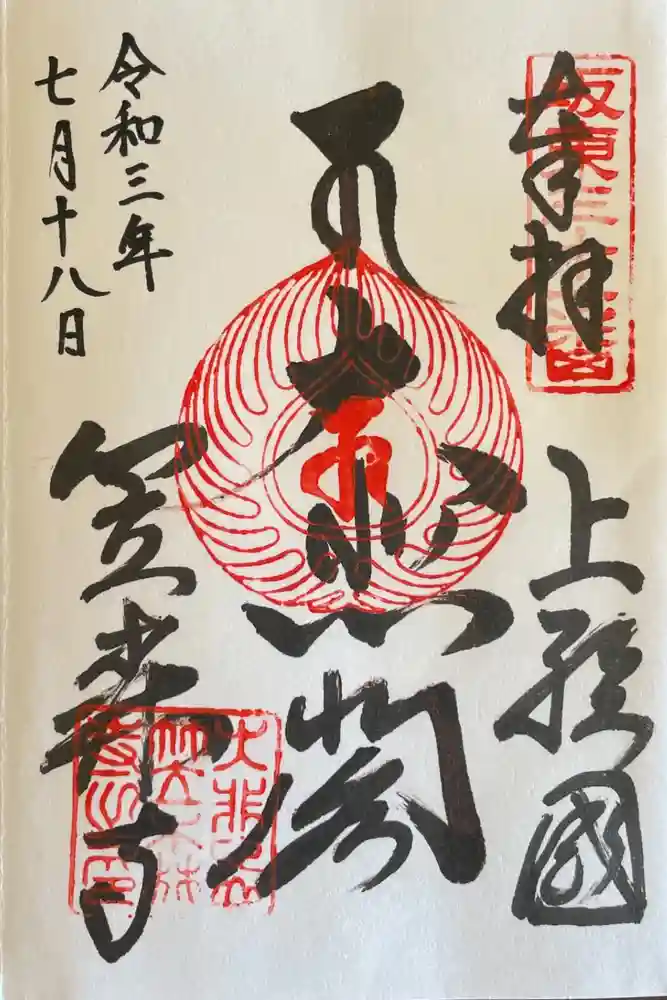 坂東三十一番
奉拝
上総國
大悲閣
笠森寺
令和三年
七月十八日